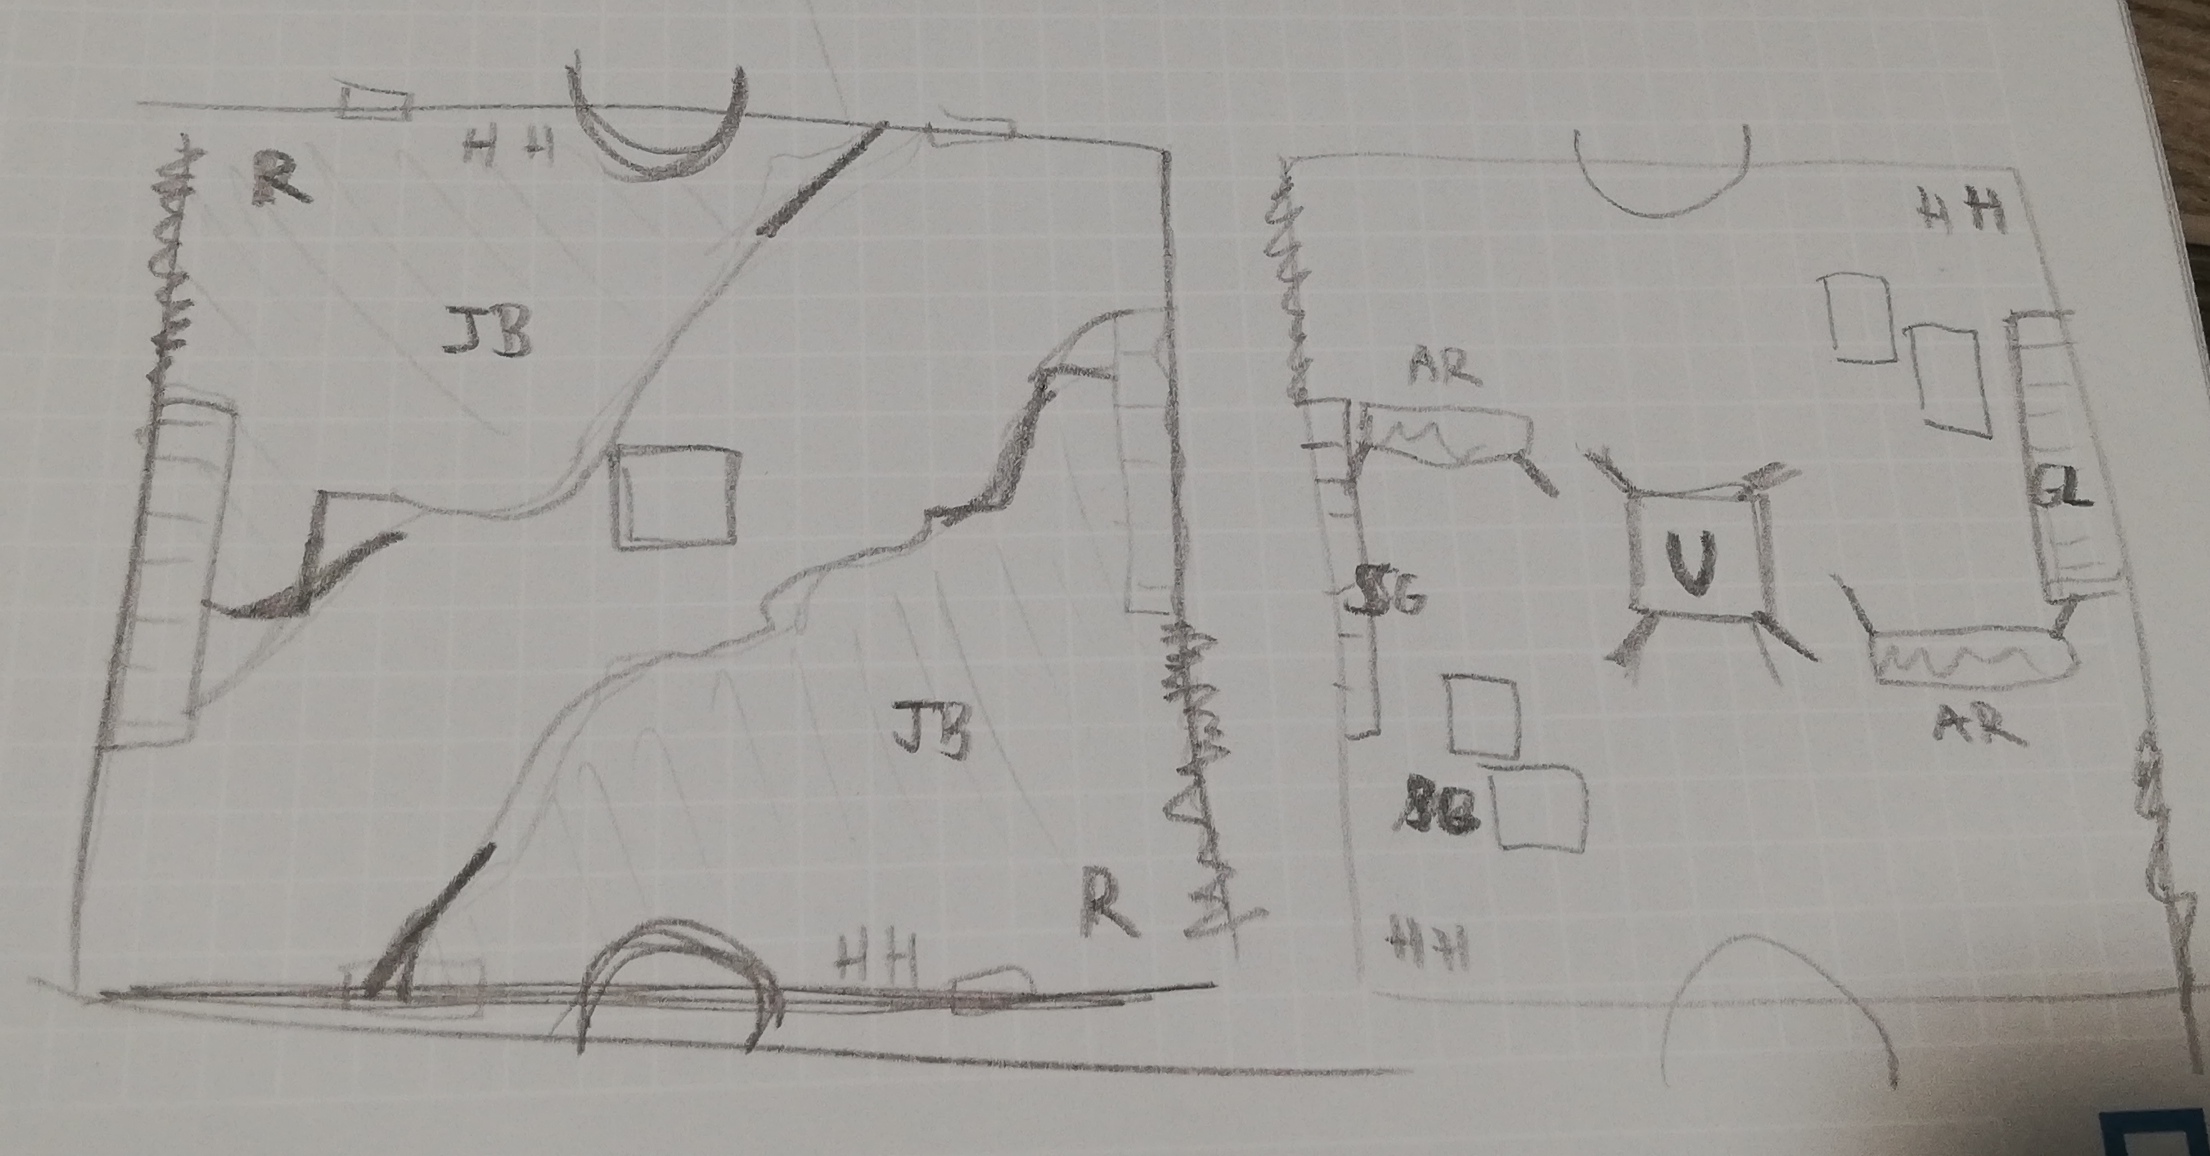 R
HH
JB
JB
R
HH
HH
AR
GL
U
SG
AR
HH